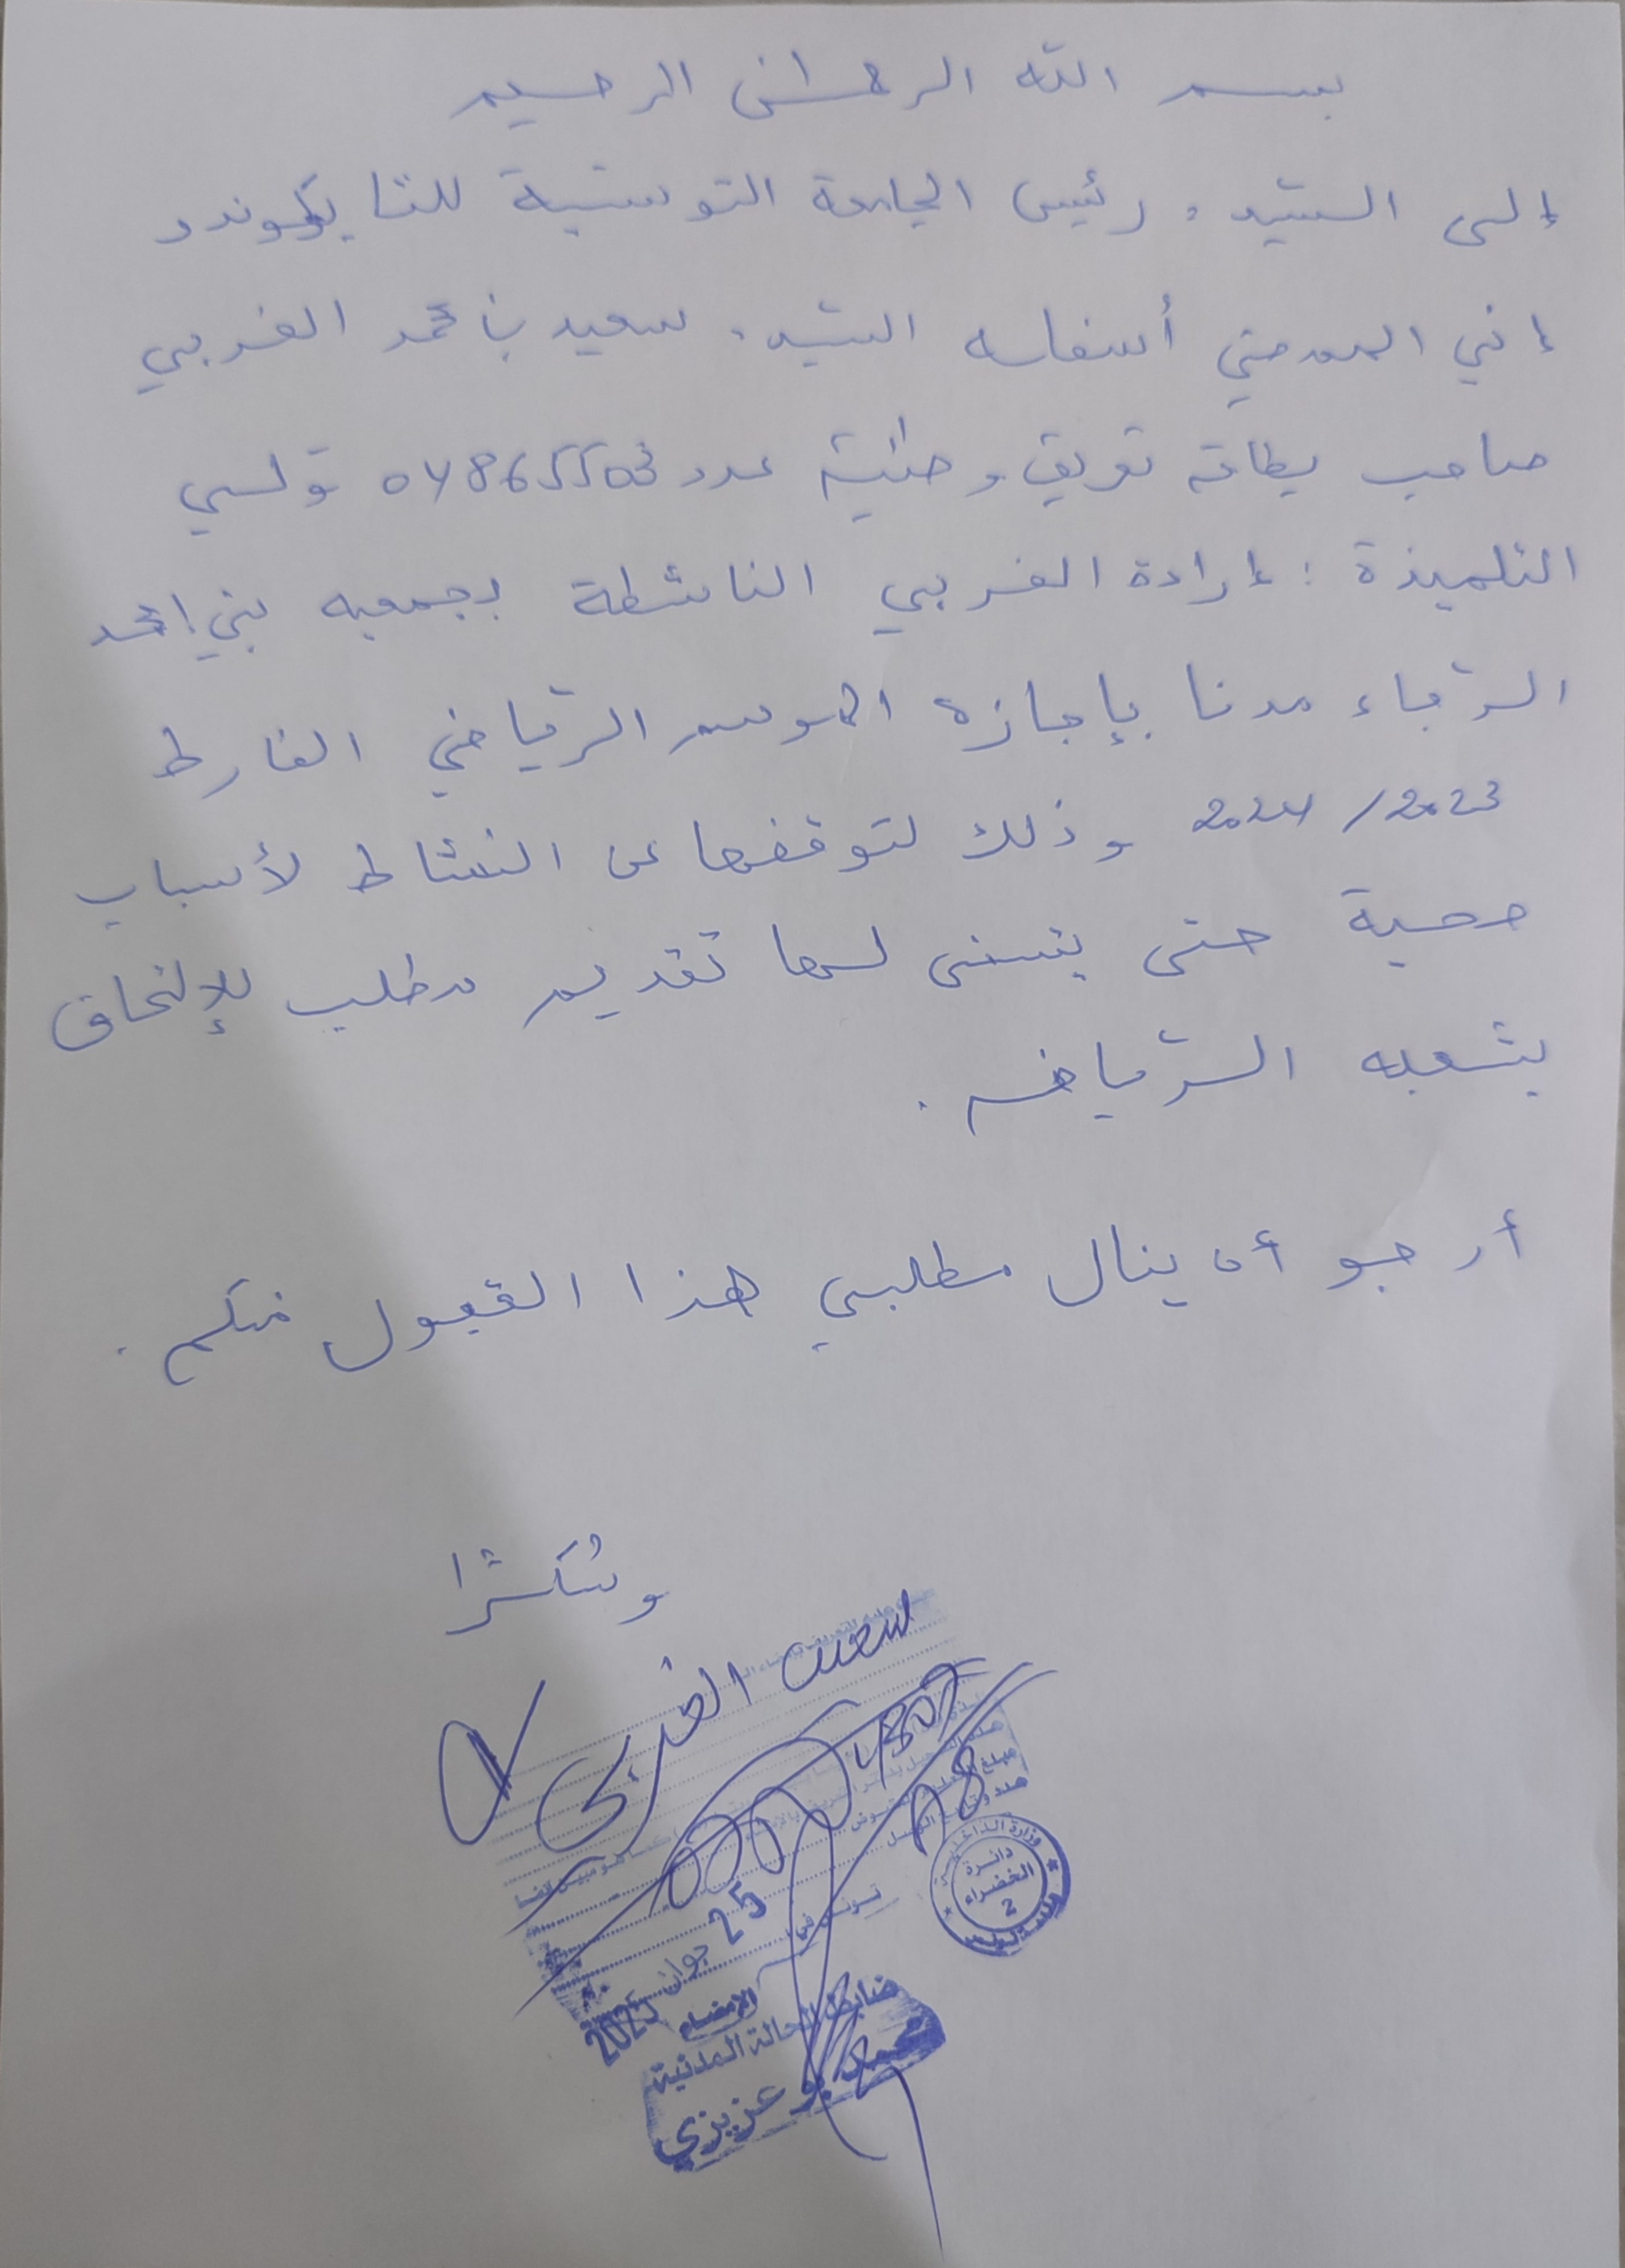 بسم الله الرحمان الرحيم
إلى السّيد: رئيس الجامعة التونسية للتايكوندو
إني الممضي أسفله السّيد: سعيد بن محمد الغربي
صاحب بطاقة تعريف وطنية عدد 04865503 ولي
التلميذة: إرادة الغربي الناشطة بجمعية بني احمد
الرّجاء مدنا بإجازة الموسم الرّياضي الفارط
2024/2023 وذلك لتوقفها عن النشاط لأسباب
صحية حتى يتسنى لها تقديم مطلب للإلتحاق
بشعبه الرّياضة.
أرجو أن ينال مطلبي هذا القبول منكم.
وشكرًا
سعيد الغربي
وزارة الداخلية
دائرة
الخضراء
2
تونس في
25 جوان 2025
الإمضاء
ضابط الحالة المدنية
بوعزيزي